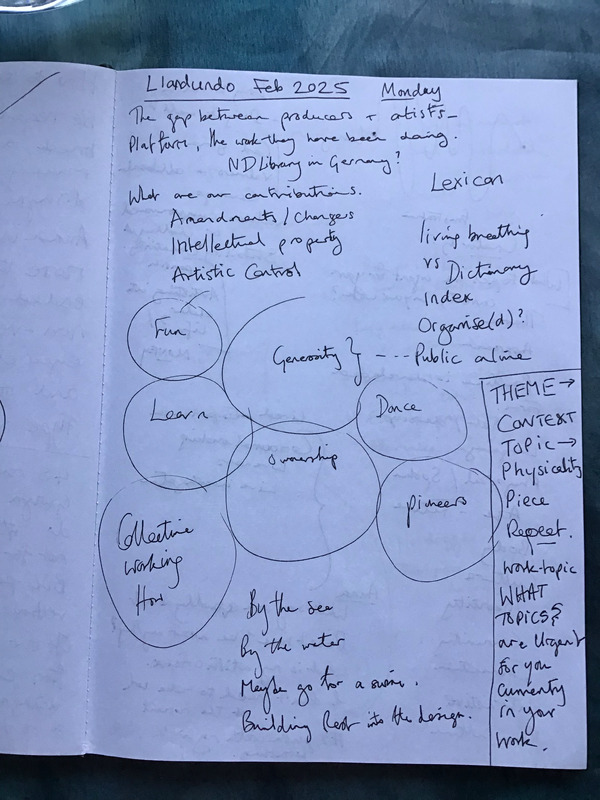 Llandundo Feb 2025 Monday
The gap between producers + artists_
Platform, the work they have been doing.
ND Library in Germany?
What are our contributions.
Amendments / Changes
Intellectual property
Artistic Control
Lexicon
living breathing
vs Dictionary
Index
Organise(d)?
Fun
Generosity } --- Public online
Learn
Dance
Ownership
Pioneers
Collective
working
How
By the sea
By the water
Maybe go for a swim.
Building Rest into the design.
THEME →
CONTEXT
TOPIC →
Physicality
Piece
Repeat.
work-topic
WHAT
TOPICS?
are Urgent
for you
currently
in your
work.